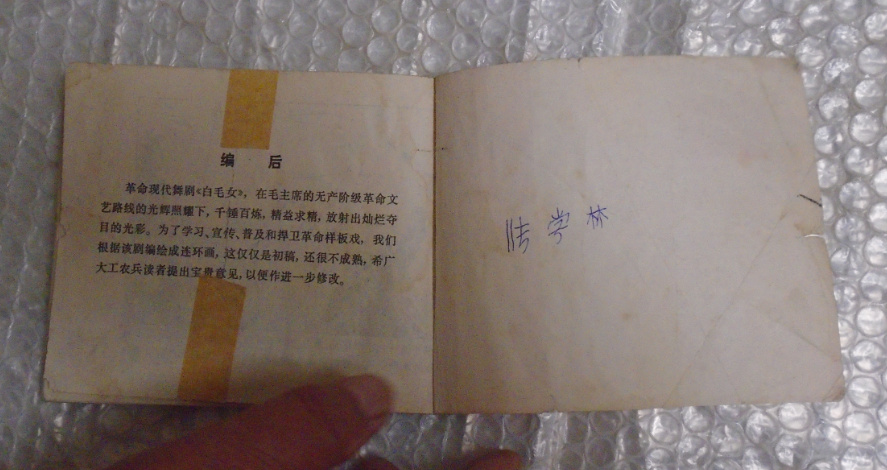 编 后
革命现代舞剧《白毛女》，在毛主席的无产阶级革命文
艺路线的光辉照耀下，千锤百炼，精益求精，放射出灿烂夺
目的光彩。为了学习、宣传、普及和捍卫革命样板戏，我们
根据该剧编绘成连环画，这仅仅是初稿，还很不成熟，希广
大工农兵读者提出宝贵意见，以便作进一步修改。
学林